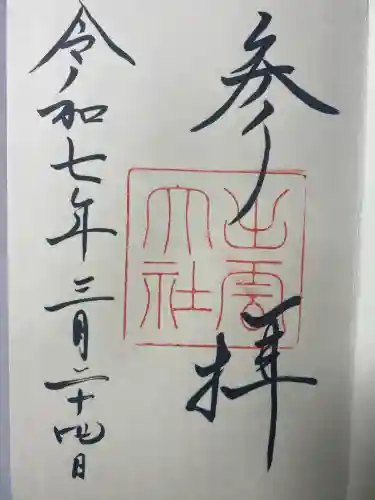 参拝
出雲
大社
令和七年三月二十四日